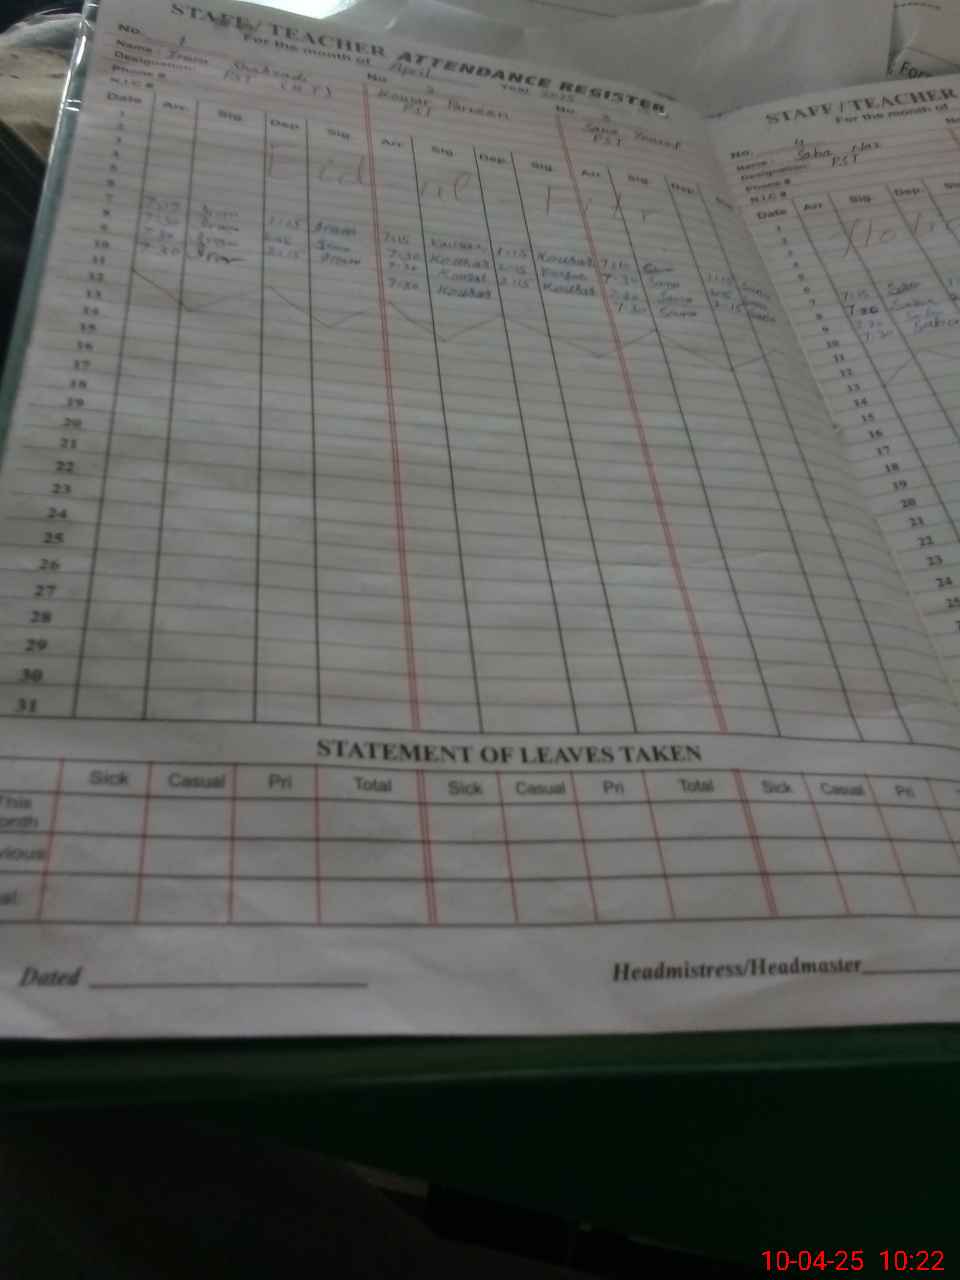 STAFF / TEACHER ATTENDANCE REGISTER
For the month of April Year 2025
No. 1 No 2 No 3
Name: Iram Shahzadi Kousar Parveen Sana Yousaf
Designation: PST (H.T) PST PST
Phone #
N.I.C #
Date Arr. Sig. Dep. Sig. Arr. Sig. Dep. Sig. Arr. Sig. Dep.
1
2
3
4
5
6
7 7:15 Iram 1:15 Iram 7:15 Kousar 1:15 Kousar 7:15 Sana 1:15 Sana
8 7:30 Iram 1:45 Iram 7:30 Kousar 1:45 Kousar 7:30 Sana 1:45 Sana
9 7:30 Iram 2:15 Iram 7:30 Kousar 2:15 Kousar 7:30 Sana 2:15 Sana
10 7:30 Iram 7:30 Kousar 7:30 Sana
11
12
13
14
15
16
17
18
19
20
21
22
23
24
25
26
27
28
29
30
31
STATEMENT OF LEAVES TAKEN
Sick Casual Pri Total Sick Casual Pri Total Sick Casual Pri
This
onth
vious
al
Dated
Headmistress/Headmaster
STAFF / TEACHER
For the month of
No. 4
Name: Saba Naz
Designation: PST
Phone #
N.I.C #
Date Arr. Sig. Dep.
1
2
3
4
5
6
7 7:15 Saba
8 7:30 Saba
9 7:30 Saba
10 7:30 Saba
11
12
13
14
15
16
17
18
19
20
21
22
23
24
25
For
10-04-25 10:22